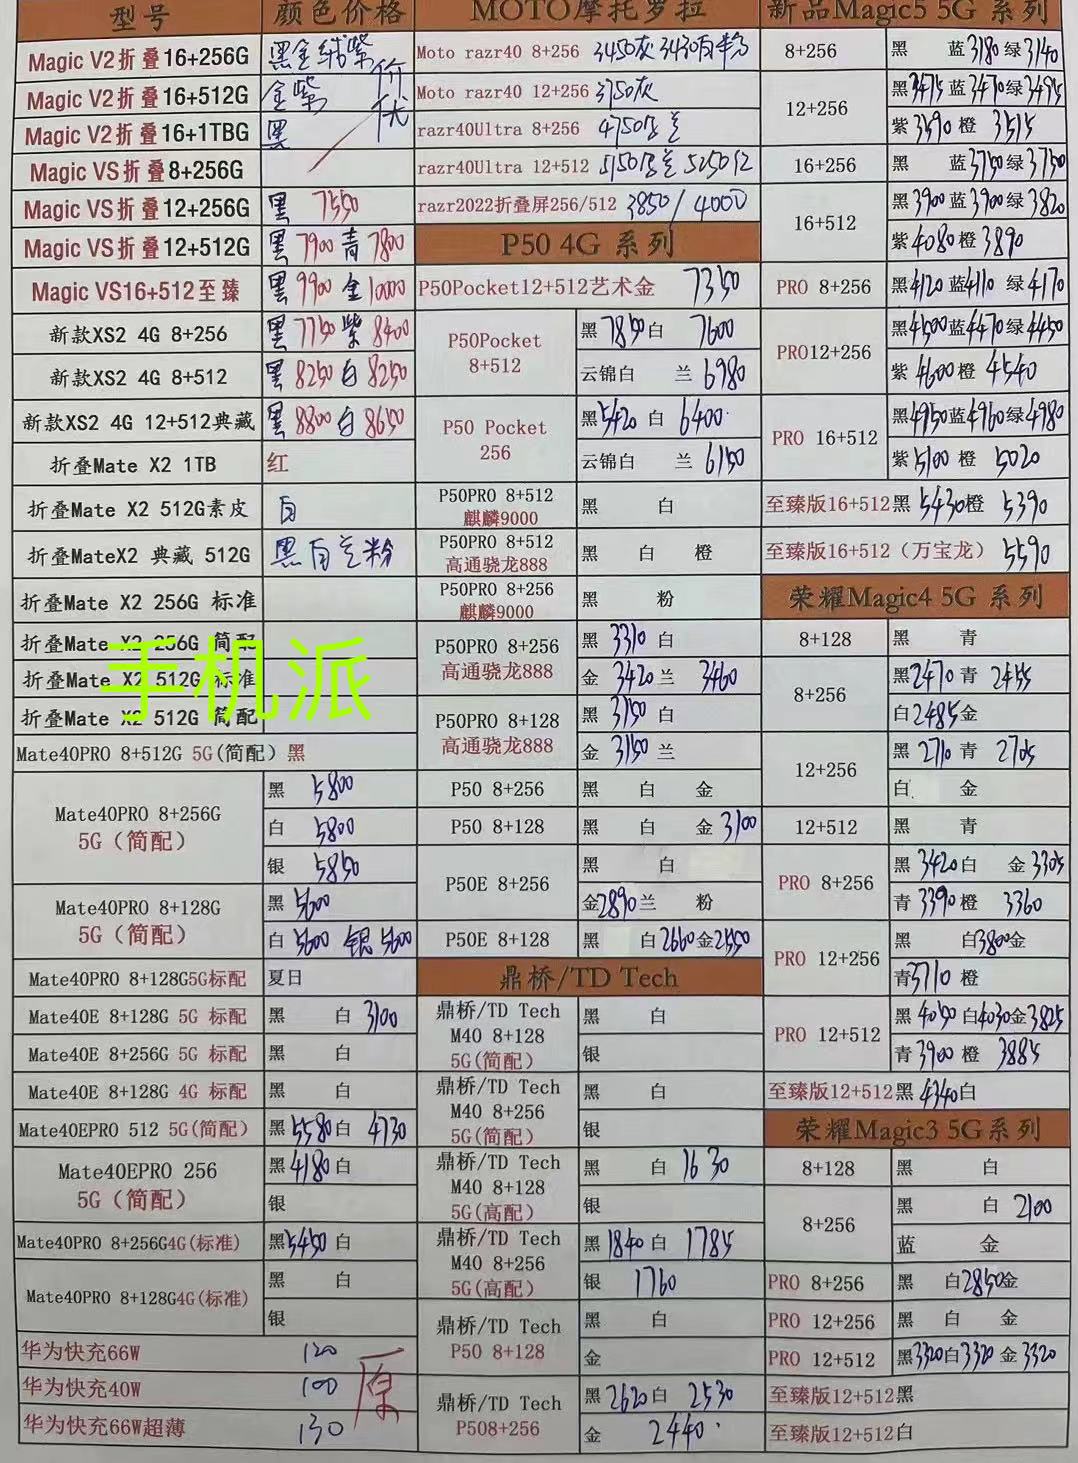 型号 颜色价格
Magic V2折叠16+256G 黑金绒紫
Magic V2折叠16+512G 金紫
Magic V2折叠16+1TBG 黑
价优
Magic VS折叠8+256G
Magic VS折叠12+256G 黑 7550
Magic VS折叠12+512G 黑 7900 青 7800
Magic VS16+512至臻 黑 9900 金 10000
新款XS2 4G 8+256 黑 7750 紫 8400
新款XS2 4G 8+512 黑 8250 白 8250
新款XS2 4G 12+512典藏 黑 8800 白 8650
折叠Mate X2 1TB 红
折叠Mate X2 512G素皮 白
折叠MateX2 典藏 512G 黑白兰粉
折叠Mate X2 256G 标准
折叠Mate X2 256G 简配
折叠Mate X2 512G 标准
折叠Mate X2 512G 简配
手机派
Mate40PRO 8+512G 5G(简配) 黑
Mate40PRO 8+256G
5G (简配)
黑 5800
白 5800
银 5850
Mate40PRO 8+128G
5G (简配)
黑 5600
白 5600 银 5600
Mate40PRO 8+128G5G标配 夏日
Mate40E 8+128G 5G 标配 黑 白 3100
Mate40E 8+256G 5G 标配 黑 白
Mate40E 8+128G 4G 标配 黑 白
Mate40EPRO 512 5G(简配) 黑 5580 白 4730
Mate40EPRO 256
5G (简配)
黑 4180 白
银
Mate40PRO 8+256G4G(标准) 黑 5450 白
Mate40PRO 8+128G4G(标准)
黑 白
银
华为快充66W 120
华为快充40W 100
华为快充66W超薄 130
原
MOTO摩托罗拉
Moto razr40 8+256 3450灰 3430白
Moto razr40 12+256 3750灰
razr40Ultra 8+256 4750
razr40Ultra 12+512 5150 5250红
razr2022折叠屏256/512 3850/4000
P50 4G 系列
P50Pocket12+512艺术金 7350
P50Pocket
8+512
黑 7850 白 7600
云锦白 兰 6980
P50 Pocket
256
黑 5420 白 6400
云锦白 兰 6150
P50PRO 8+512
麒麟9000
黑 白
P50PRO 8+512
高通骁龙888
黑 白 橙
P50PRO 8+256
麒麟9000
黑 粉
P50PRO 8+256
高通骁龙888
黑 3310 白
金 3420 兰 3460
P50PRO 8+128
高通骁龙888
黑 3150 白
金 3150 兰
P50 8+256 黑 白 金
P50 8+128 黑 白 金 3100
P50E 8+256
黑 白
金 2890 兰 粉
P50E 8+128 黑 白 2660 金 2550
鼎桥/TD Tech
鼎桥/TD Tech
M40 8+128
5G(简配)
黑 白
银
鼎桥/TD Tech
M40 8+256
5G(简配)
黑 白
银
鼎桥/TD Tech
M40 8+128
5G(高配)
黑 白 1630
银
鼎桥/TD Tech
M40 8+256
5G(高配)
黑 1840 白 1785
银 1760
鼎桥/TD Tech
P50 8+128
黑 白
金
鼎桥/TD Tech
P508+256
黑 2620 白 2530
金 2440
新品Magic5 5G 系列
8+256 黑 蓝 3180 绿 3140
12+256
黑 3475 蓝 3470 绿 3495
紫 3590 橙 3515
16+256 黑 蓝 3750 绿 3750
16+512
黑 3900 蓝 3900 绿 3820
紫 4080 橙 3890
PRO 8+256 黑 4120 蓝 4110 绿 4170
PRO12+256
黑 4500 蓝 4470 绿 4450
紫 4600 橙 4540
PRO 16+512
黑 4950 蓝 4960 绿 4980
紫 5100 橙 5020
至臻版16+512 黑 5430 橙 5390
至臻版16+512 (万宝龙) 5590
荣耀Magic4 5G 系列
8+128 黑 青
8+256
黑 2470 青 2455
白 2485 金
12+256
黑 2710 青 2705
白 金
12+512 黑 青
PRO 8+256
黑 3420 白 金 3305
青 3390 橙 3360
PRO 12+256
黑 白 3800 金
青 3710 橙
PRO 12+512
黑 4050 白 4030 金 3825
青 3900 橙 3885
至臻版12+512 黑 4340 白
荣耀Magic3 5G系列
8+128 黑 白
8+256
黑 白 2100
蓝 金
PRO 8+256 黑 白 2850 金
PRO 12+256 黑 白 金
PRO 12+512 黑 3320 白 3320 金 3320
至臻版12+512 黑
至臻版12+512 白